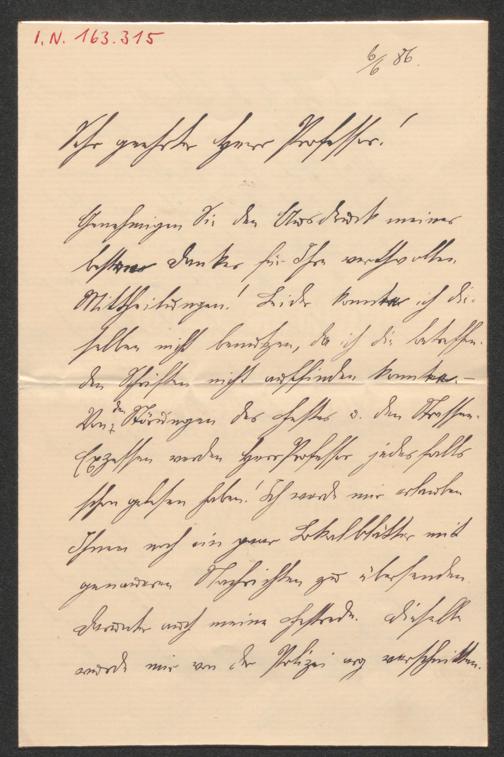 I.N. 163.315
6/6 86.
Sehr geehrter Herr Professor!
Genehmigen Sie den Ausdruck meines
besten Dankes für Ihre werthvollen
Mittheilungen! Leider konnte ich die-
selben nicht benutzen, da ich die betreffen-
den Schriften nicht auffinden konnte.—
Von den Störungen des Festes u. den Strassen-
Exzessen werden Herr Professor jedesfalls
schon gelesen haben! Ich werde mir erlauben
Ihnen noch ein paar Lokalblätter mit
genaueren Nachrichten zu übersenden
darunter auch meine Festrede. Dieselbe
wurde mir von der Polizei arg verschnitten.